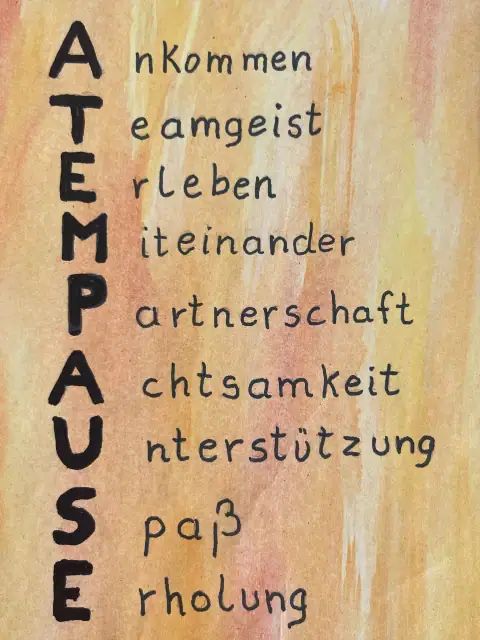 Ankommen
Teamgeist
Erleben
Miteinander
Partnerschaft
Achtsamkeit
Unterstützung
Spaß
Erholung